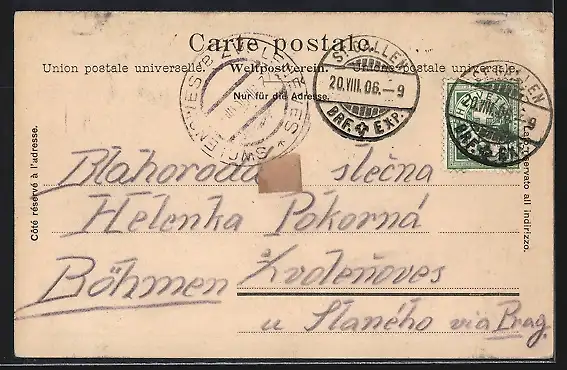 Carte postale.
Union postale universelle. Weltpostverein. postale universale.
Nur für die Adresse.
ST. GALLEN
20.VIII.06.–9
BRF. EXP.
ST. GALLEN
20.VIII.06.–9
BRF. EXP.
Côté réservé à l'adresse.
Lato riservato all indirizzo.
Blahorodá slečna
Helenka Pokorná
Böhmen Zvoleňoves
u Slaného via Prag.